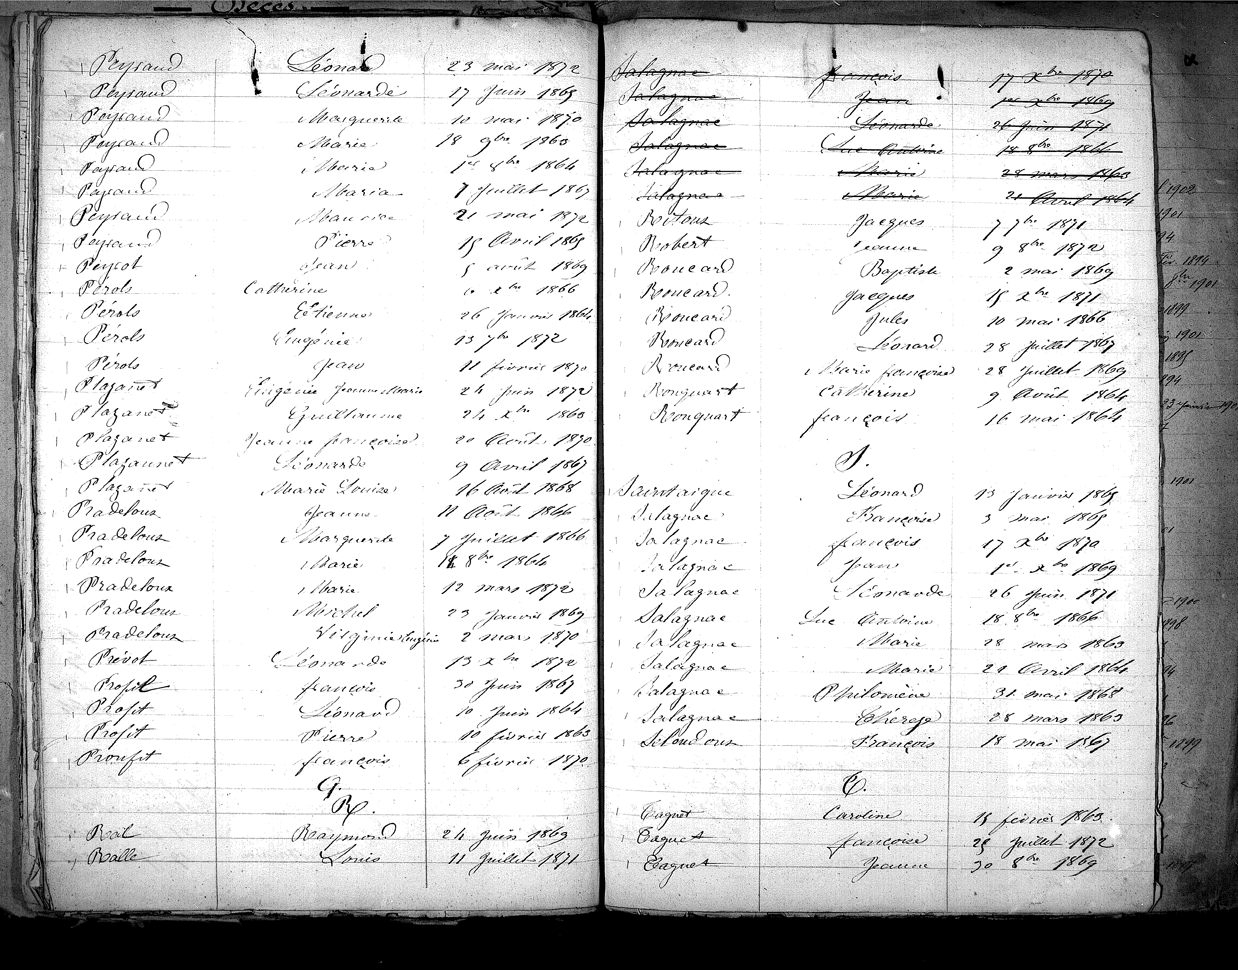 Décès
Peyraud Léonard 23 mai 1872
Peyraud Léonarde 17 Juin 1865
Peyraud Marguerite 10 mai 1870
Peyraud Marie 18 9bre 1863
Peyraud Marie 1er 8bre 1864
Peyraud Maria 7 Juillet 1867
Peyraud Maurice 21 mai 1872
Peyraud Pierre 15 Avril 1865
Peycot Jean 5 août 1869
Pérols Catherine xbre 1866
Pérols Etienne 26 Janvier 1864
Pérols Eugénie 13 7bre 1872
Pérols Jean 11 février 1870
Plazanet Eugénie Jeanne Marie 24 Juin 1872
Plazanet Guillaume 24 xbre 1863
Plazanet Jeanne françoise 20 Août 1870
Plazannet Léonarde 9 Avril 1867
Plazanet Marie Louise 16 Août 1868
Pradeloux Jeanne 11 Août 1866
Pradeloux Marguerite 7 Juillet 1866
Pradeloux Marie 8bre 1864
Pradeloux Marie 12 mars 1872
Pradeloux Michel 23 Janvier 1869
Pradeloux Virginie Eugénie 2 mars 1870
Prévot Léonarde 13 xbre 1872
Profit françois 30 Juin 1867
Profit Léonard 10 Juin 1864
Profit Pierre 10 février 1863
Proufit françois 6 février 1870
Q.
R.
Raymond 24 Juin 1869
Ralle Louis 11 Juillet 1871
Salagnac françois 17 xbre 1870
Salagnac Jean 1er xbre 1869
Salagnac Léonarde 26 Juin 1871
Salagnac Luc Antoine 18 8bre 1866
Salagnac Marie 28 mars 1863
Salagnac Marie 21 Avril 1864
Ritoux Jacques 7 7bre 1871
Robert Jeanne 9 8bre 1872
Roucard Baptiste 2 mai 1869
Roucard Jacques 15 xbre 1871
Roucard Jules 10 mai 1866
Roucard Léonard 28 Juillet 1867
Roucard Marie françoise 28 Juillet 1869
Rouquart Catherine 9 Août 1864
Rouquart françois 16 mai 1864
S.
Saintaigue Léonard 13 Janvier 1865
Salagnac Françoise 3 mai 1865
Salagnac françois 17 xbre 1870
Salagnac Jean 1er xbre 1869
Salagnac Léonarde 26 Juin 1871
Salagnac Luc Antoine 18 8bre 1866
Salagnac Marie 28 mars 1863
Salagnac Marie 21 Avril 1864
Salagnac Philomène 31 mai 1868
Salagnac Thérèse 28 mars 1863
Seloudoux François 18 mai 1867
T.
Taguet Caroline 15 février 1863
Taguet françoise 28 Juillet 1872
Taguet Jeanne 30 8bre 1869